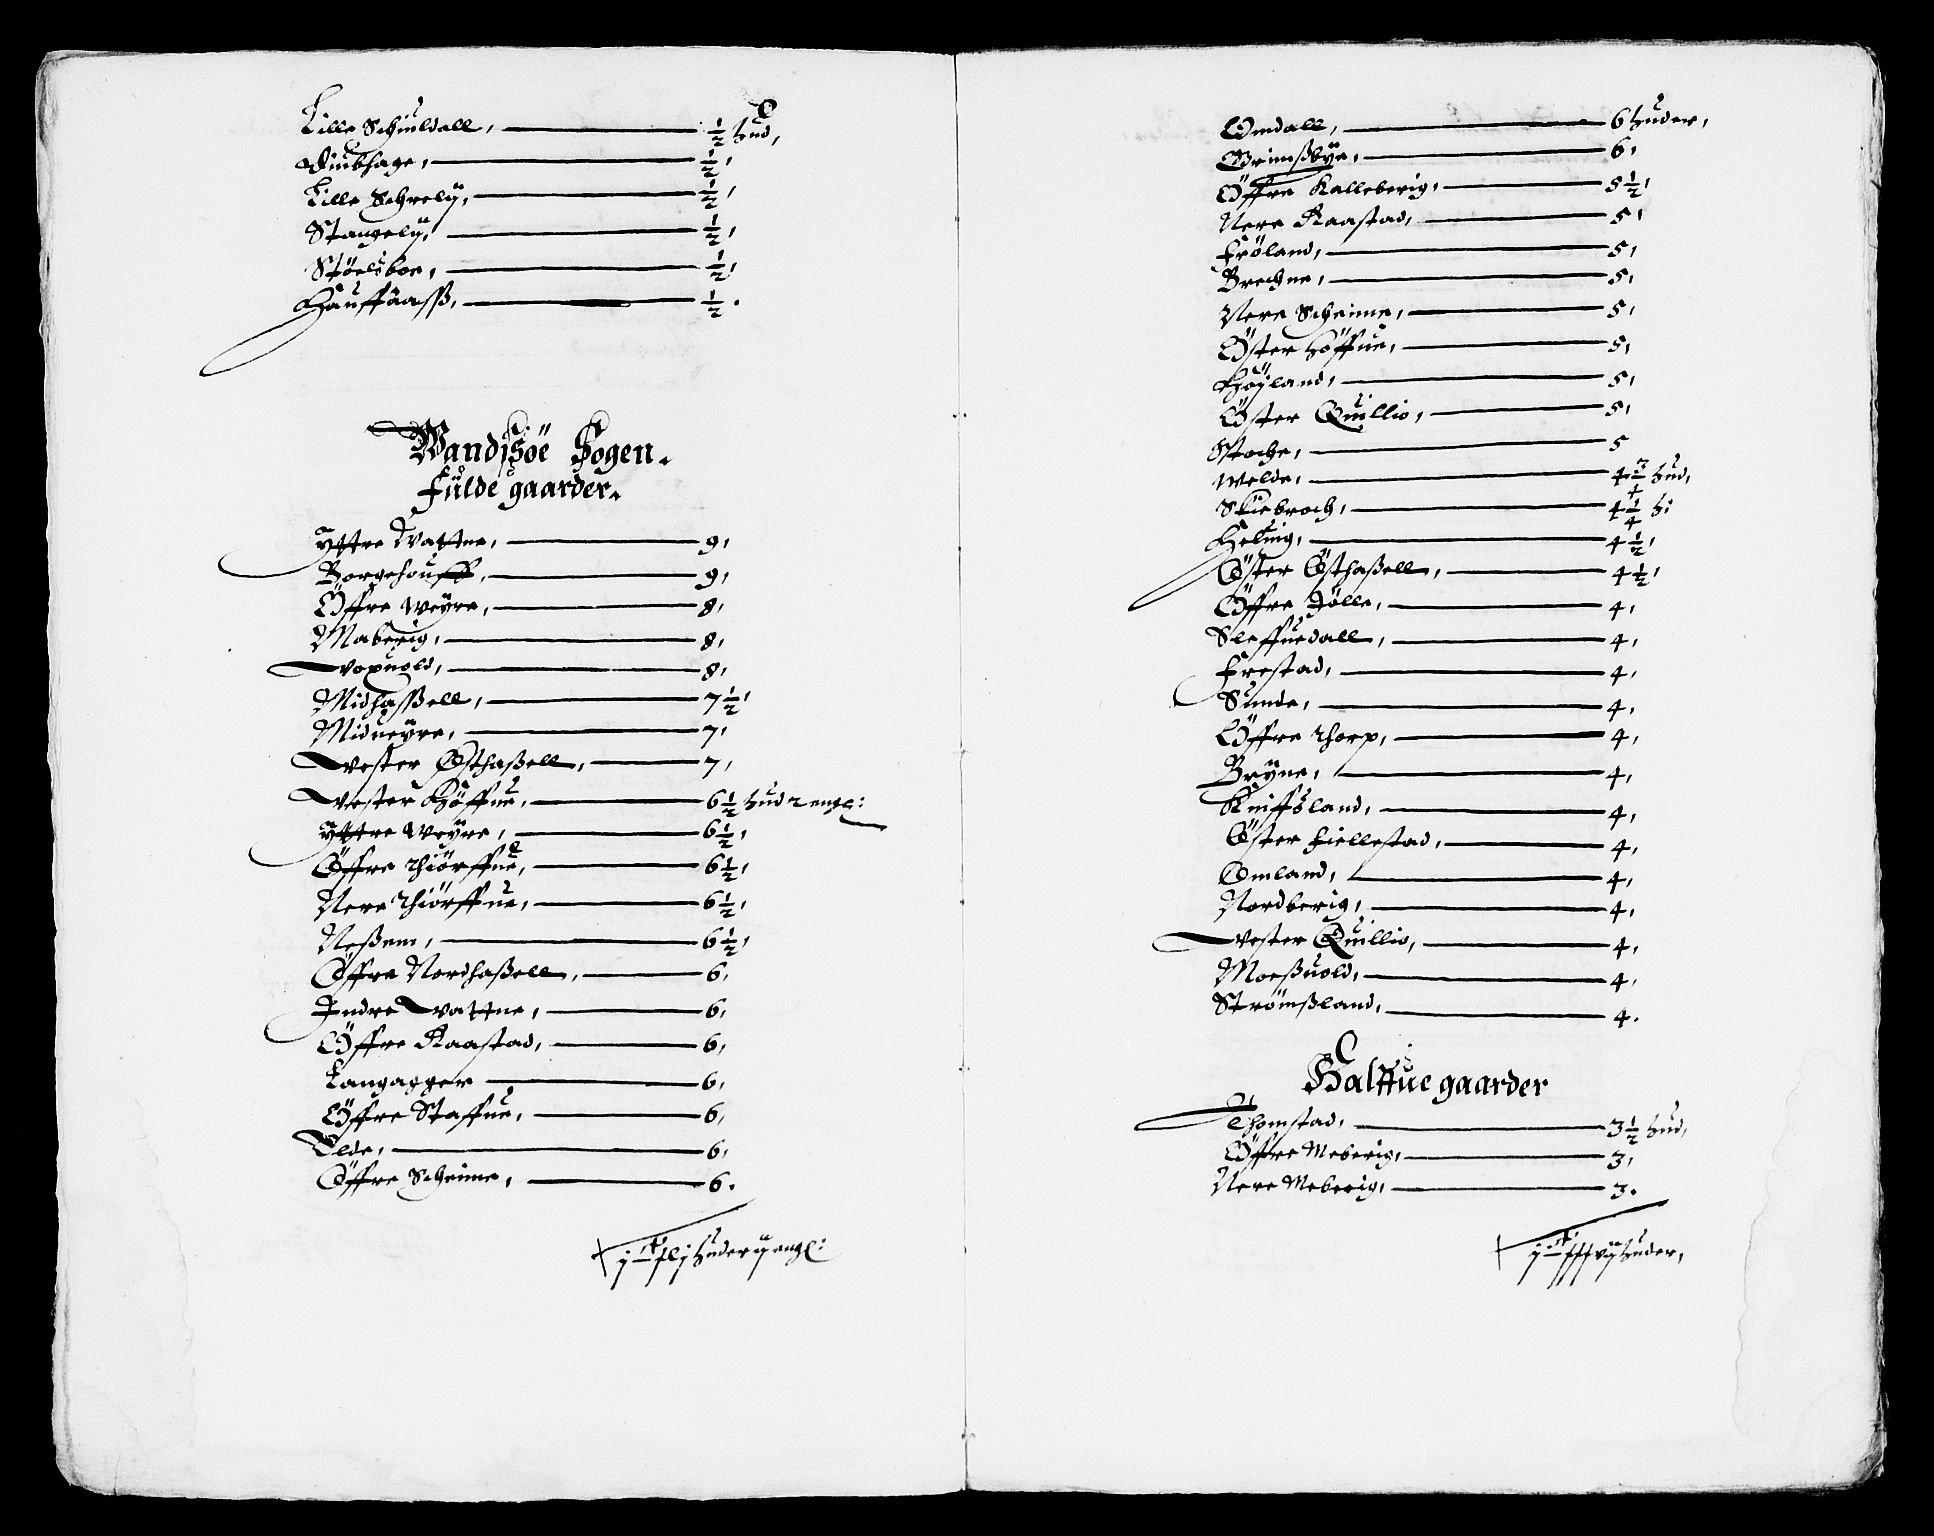 Lille Schiuldall, ½ hud,
Diubhage, ½,
Lille Schrely, ½,
Stangely, ½,
Stöelsboe, ½,
Hauffaass, ½.
Wandssöe Sogen.
Fulde gaarder.
Yttre Vattne, 9,
Borgehouff, 9,
Öffre Weyre, 8,
Maberig, 8,
Vopuold, 8,
Midhassell, 7½,
Midueyre, 7,
Vester Östhaßell, 7,
Vester Höffue, 6½ hud 2 engl:
Yttre Weyre, 6½,
Öffre Thiörffue, 6½,
Nere Thiörffue, 6½,
Neßem, 6½,
Öffre Nordhaßell, 6,
Indre Vattne, 6,
Öffre Raastad, 6,
Langagger 6,
Öffre Staffue, 6,
Elde, 6,
Öffre Scheime, 6.
huder engl:
Omdall, 6 huder,
Grimßbye, 6,
Öffre Kalleberig, 5½,
Nere Raastad, 5,
Fröland, 5,
Brechne, 5,
Nere Scheime, 5,
Öster Höffue, 5,
Höyland, 5,
Öster Quillio, 5,
Stoche, 5
Welde, 4¾ hud,
Skiebroch, 4¼ h:
Heluig, 4½,
Öster Östhaßell, 4½,
Öffre Jölle, 4,
Sleffuedall, 4,
Frestad, 4,
Sunde, 4,
Öffre Thorp, 4,
Bryne, 4,
Kniffsland, 4,
Öster Fiellestad, 4,
Omland, 4,
Nordberig, 4,
Vester Quillio, 4,
Moeßuold, 4,
Strömßland, 4.
Halffue gaarder
Thomstad, 3½ hud,
Öffre Meberig, 3,
Nere Meberig, 3.
huder,